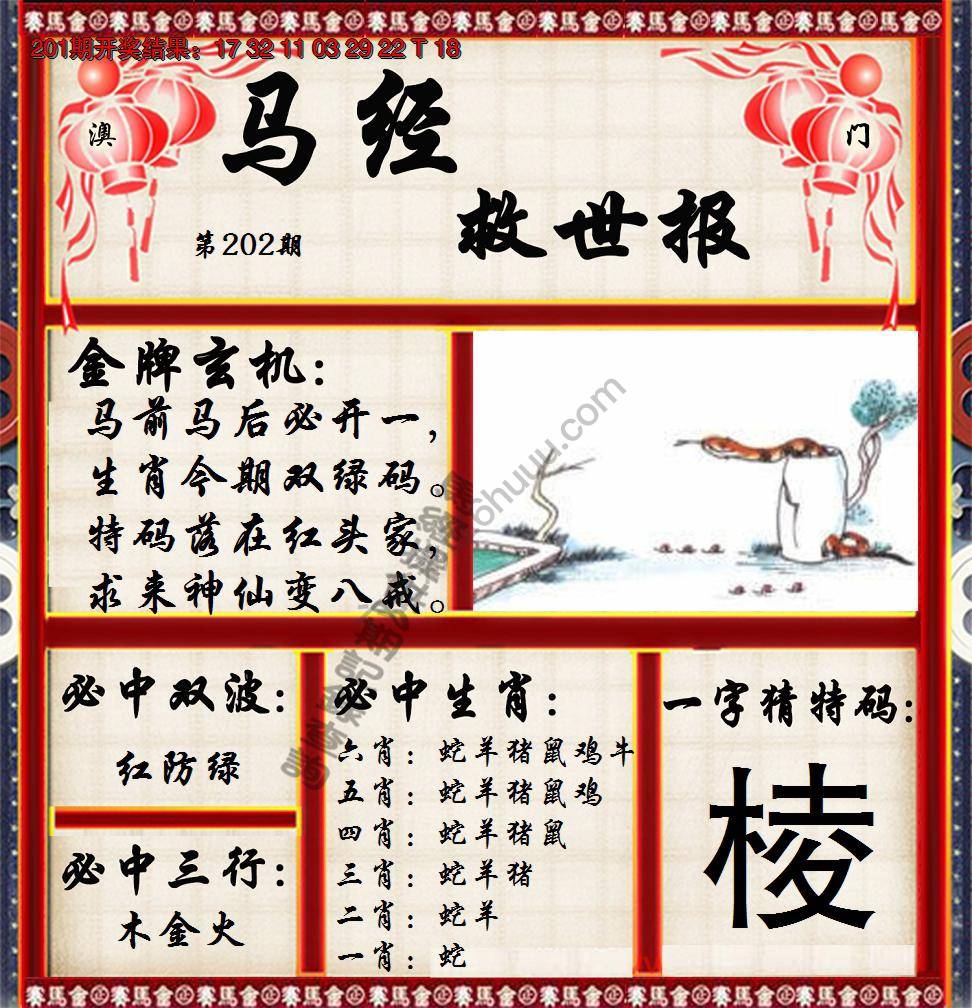 201期开奖结果：17 32 11 03 29 22 T 18
澳门
马经
救世报
第202期
金牌玄机：
马前马后必开一，
生肖今期双绿码。
特码落在红头家，
求来神仙变八戒。
必中双波：
红防绿
必中三行：
木金火
必中生肖：
六肖：蛇羊猪鼠鸡牛
五肖：蛇羊猪鼠鸡
四肖：蛇羊猪鼠
三肖：蛇羊猪
二肖：蛇羊
一肖：蛇
一字猜特码：
棱